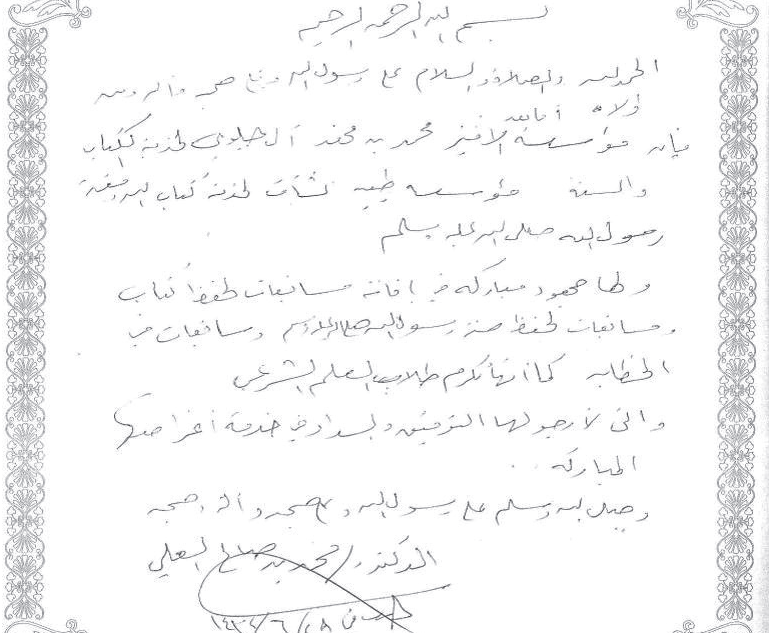 بسم الله الرحمن الرحيم
الحمد لله والصلاة والسلام على رسول الله وعلى صحبه وآله ومن
والاه أما بعد
فإن مؤسسة الأمير محمد بن محمد آل جلوي لخدمة الكتاب
والسنة مؤسسة طيبة نشأت لخدمة كتاب الله وسنة
رسول الله صلى الله عليه وسلم
ولها جهود مباركة في إقامة مسابقات لحفظ كتاب
ومسابقات لحفظ سنة رسول الله صلى الله عليه وسلم ومسابقات في
الخطابة كما أنها تكرم طلاب العلم الشرعي
وإني لأرجو لها التوفيق والسداد في خدمة أغراضها
المباركة
وصلى الله وسلم على رسول الله و صحبه وآله وصحبه
الدكتور / محمد بن صالح العلي
١٤٣٤/٦/٢٨